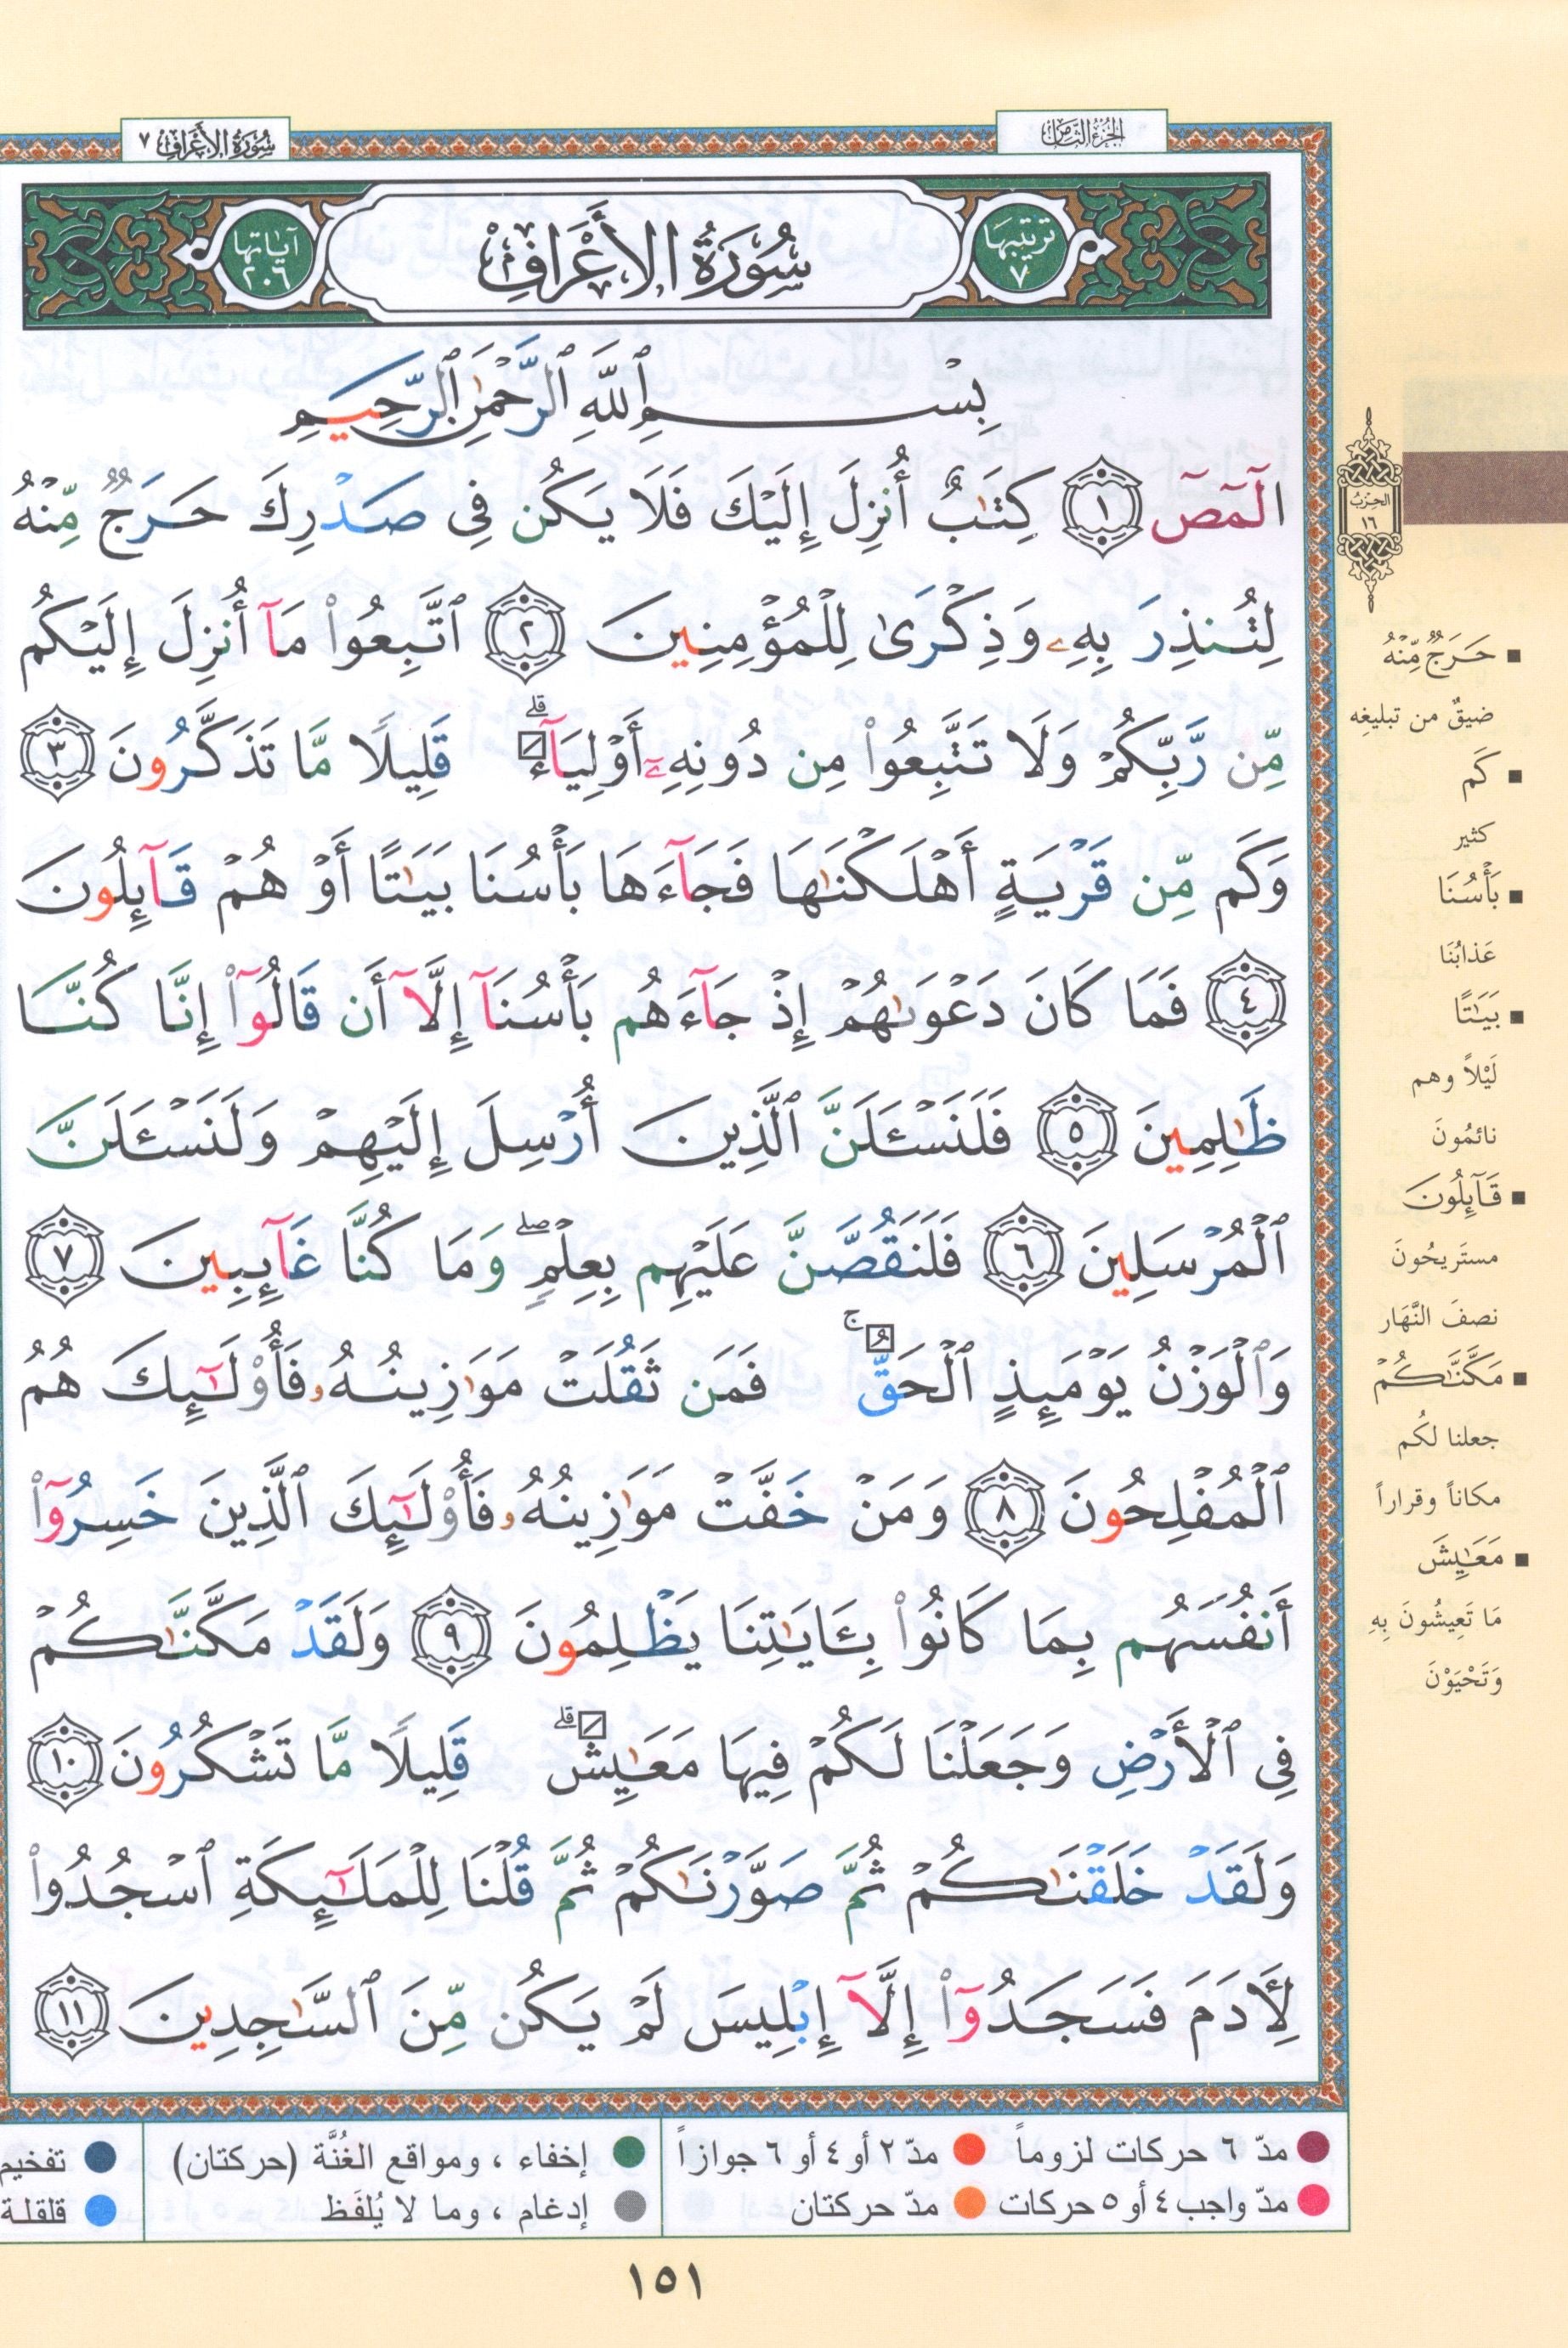 الجزء الثامن
سورة الأعراف ٧
ترتيبها ٧
سُورَةُ الأَعْرَافِ
آياتها ٢٠٦
بِسْمِ ٱللَّهِ ٱلرَّحْمَٰنِ ٱلرَّحِيمِ
الٓمٓصٓ ١ كِتَٰبٌ أُنزِلَ إِلَيْكَ فَلَا يَكُن فِى صَدْرِكَ حَرَجٌ مِّنْهُ
لِتُنذِرَ بِهِۦ وَذِكْرَىٰ لِلْمُؤْمِنِينَ ٢ ٱتَّبِعُوا۟ مَآ أُنزِلَ إِلَيْكُم
مِّن رَّبِّكُمْ وَلَا تَتَّبِعُوا۟ مِن دُونِهِۦٓ أَوْلِيَآءَ ۗ قَلِيلًا مَّا تَذَكَّرُونَ ٣
وَكَم مِّن قَرْيَةٍ أَهْلَكْنَٰهَا فَجَآءَهَا بَأْسُنَا بَيَٰتًا أَوْ هُمْ قَآئِلُونَ
٤ فَمَا كَانَ دَعْوَىٰهُمْ إِذْ جَآءَهُم بَأْسُنَآ إِلَّآ أَن قَالُوٓا۟ إِنَّا كُنَّا
ظَٰلِمِينَ ٥ فَلَنَسْـَٔلَنَّ ٱلَّذِينَ أُرْسِلَ إِلَيْهِمْ وَلَنَسْـَٔلَنَّ
ٱلْمُرْسَلِينَ ٦ فَلَنَقُصَّنَّ عَلَيْهِم بِعِلْمٍ ۖ وَمَا كُنَّا غَآئِبِينَ ٧
وَٱلْوَزْنُ يَوْمَئِذٍ ٱلْحَقُّ ۚ فَمَن ثَقُلَتْ مَوَٰزِينُهُۥ فَأُو۟لَٰٓئِكَ هُمُ
ٱلْمُفْلِحُونَ ٨ وَمَنْ خَفَّتْ مَوَٰزِينُهُۥ فَأُو۟لَٰٓئِكَ ٱلَّذِينَ خَسِرُوٓا۟
أَنفُسَهُم بِمَا كَانُوا۟ بِـَٔايَٰتِنَا يَظْلِمُونَ ٩ وَلَقَدْ مَكَّنَّٰكُمْ
فِى ٱلْأَرْضِ وَجَعَلْنَا لَكُمْ فِيهَا مَعَٰيِشَ ۗ قَلِيلًا مَّا تَشْكُرُونَ ١٠
وَلَقَدْ خَلَقْنَٰكُمْ ثُمَّ صَوَّرْنَٰكُمْ ثُمَّ قُلْنَا لِلْمَلَٰٓئِكَةِ ٱسْجُدُوا۟
لِـَٔادَمَ فَسَجَدُوٓا۟ إِلَّآ إِبْلِيسَ لَمْ يَكُن مِّنَ ٱلسَّٰجِدِينَ ١١
الحزب
١٦
■ حَرَجٌ مِّنْهُ
ضيقٌ من تبليغِه
■ كَم
كثير
■ بَأْسُنَا
عَذابُنَا
■ بَيَٰتًا
لَيْلاً وهم
نائمُونَ
■ قَآئِلُونَ
مستَريحُونَ
نصفَ النَّهَار
■ مَكَّنَّٰكُمْ
جعلنا لكُم
مكاناً وقراراً
■ مَعَٰيِشَ
مَا تَعِيشُونَ بِهِ
وَتَحْيَوْنَ
مدّ ٦ حركات لزوماً
مدّ ٢ أو ٤ أو ٦ جوازاً
إخفاء ، ومواقع الغُنَّة (حركتان)
تفخيم
مدّ واجب ٤ أو ٥ حركات
مدّ حركتان
إدغام ، وما لا يُلفَظ
قلقلة
١٥١